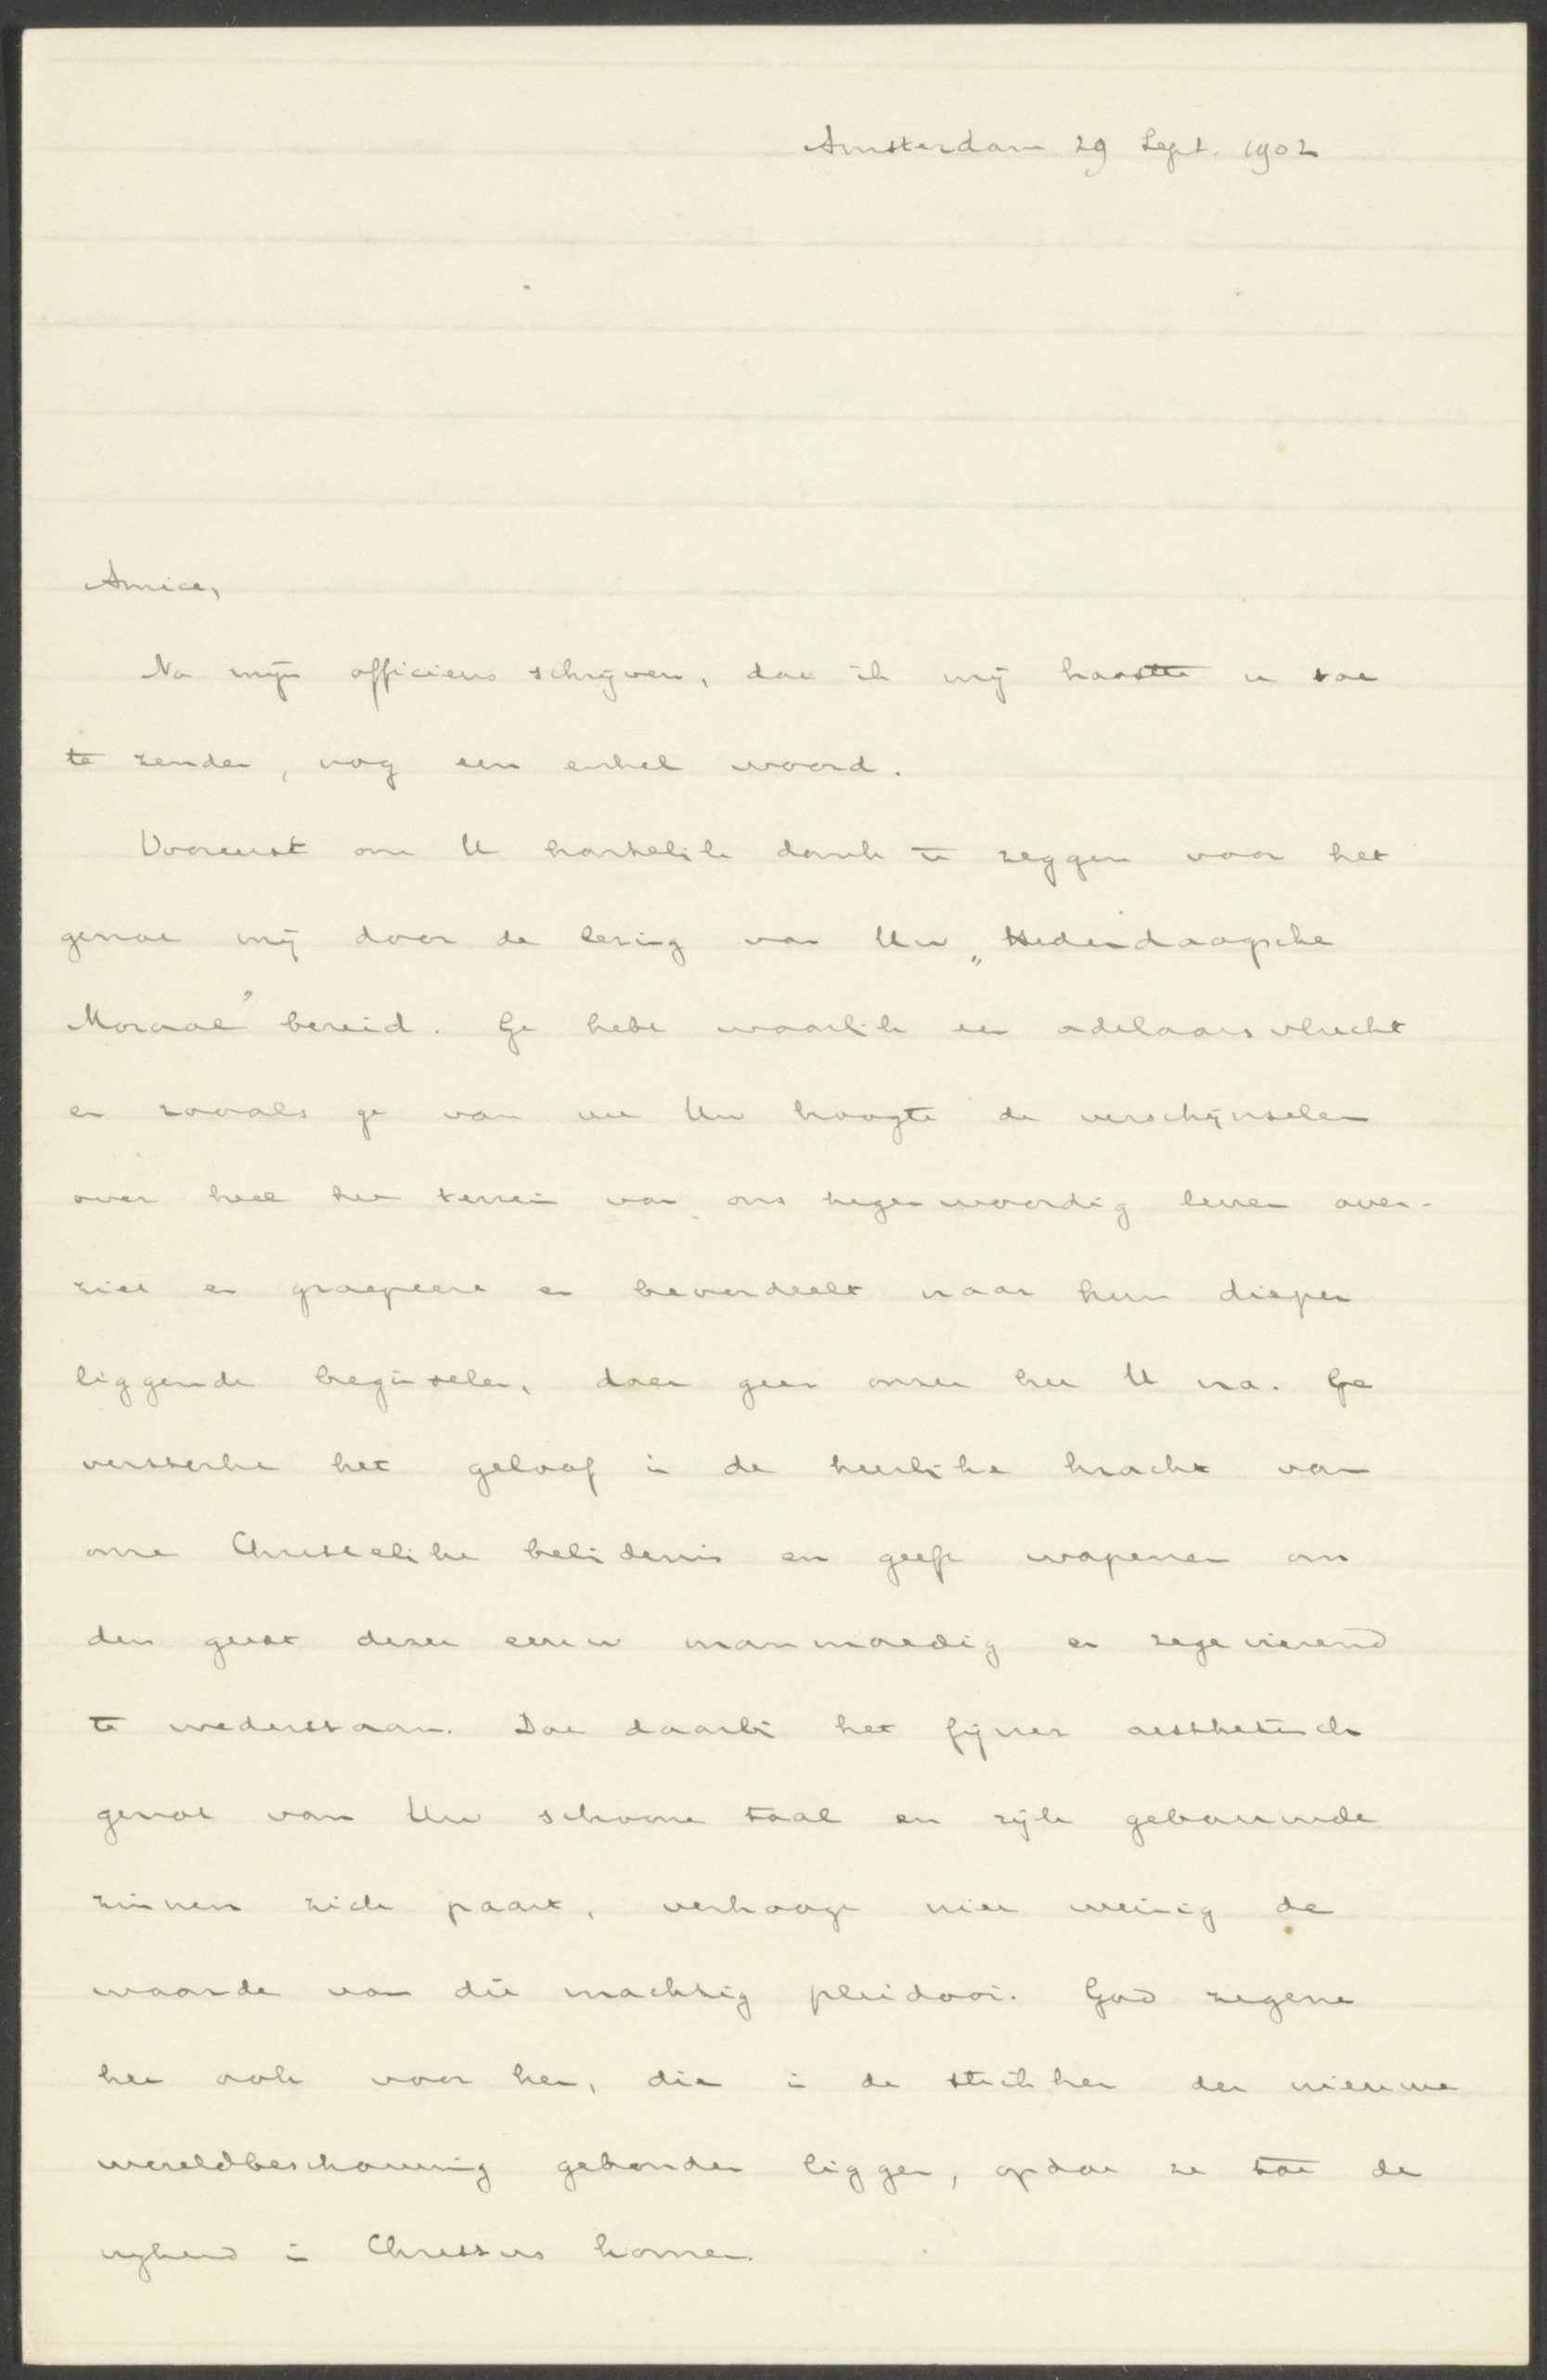 Amsterdam 29 Sept. 1902
Amice,
Na mijn officieus schrijven, dat ik mij haastte u toe
te zenden, nog een enkel woord.
Vooreerst om U hartelik dank te zeggen voor het
genot mij door de lezing van Uw „Hedendaagsche
Moraal” bereid. Ge hebt waarlik een adelaarsvlucht
en zooals ge van uit Uw hoogte de verschijnselen
over heel het terrein van ons tegenwoordig leven over-
ziet en groepeert en beoordeelt naar hun dieper
liggende beginselen, doet geen onzer het U na. Ge
versterkt het geloof in de heerlike kracht van
onze Christelike belidenis en geeft wapenen om
den geest dezer eeuw manmoedig en zegevierend
te wederstaan. Dat daarbi het fijner aesthetisch
genot van Uw schoone taal en rijk gebouwde
zinnen zich paart, verhoogt niet weinig de
waarde van dit machtig pleidooi. God zegene
het ook voor hen, die in de strikken der nieuwe
wereldbeschouwing gebonden liggen, opdat ze tot de
vrijheid in Christus komen.